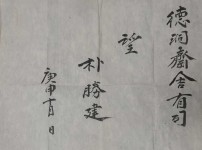 德洞齋舍有司
望
朴勝建
庚申十月 日